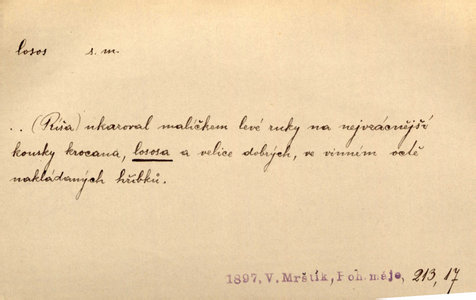 losos s. m.
.. (Ríša) ukazoval malíčkem levé ruky na nejvzácnější
kousky krocana, lososa a velice dobrých, ve vinném octě
nakládaných hříbků.
1897, V. Mrštík, Poh. máje, 213, 17